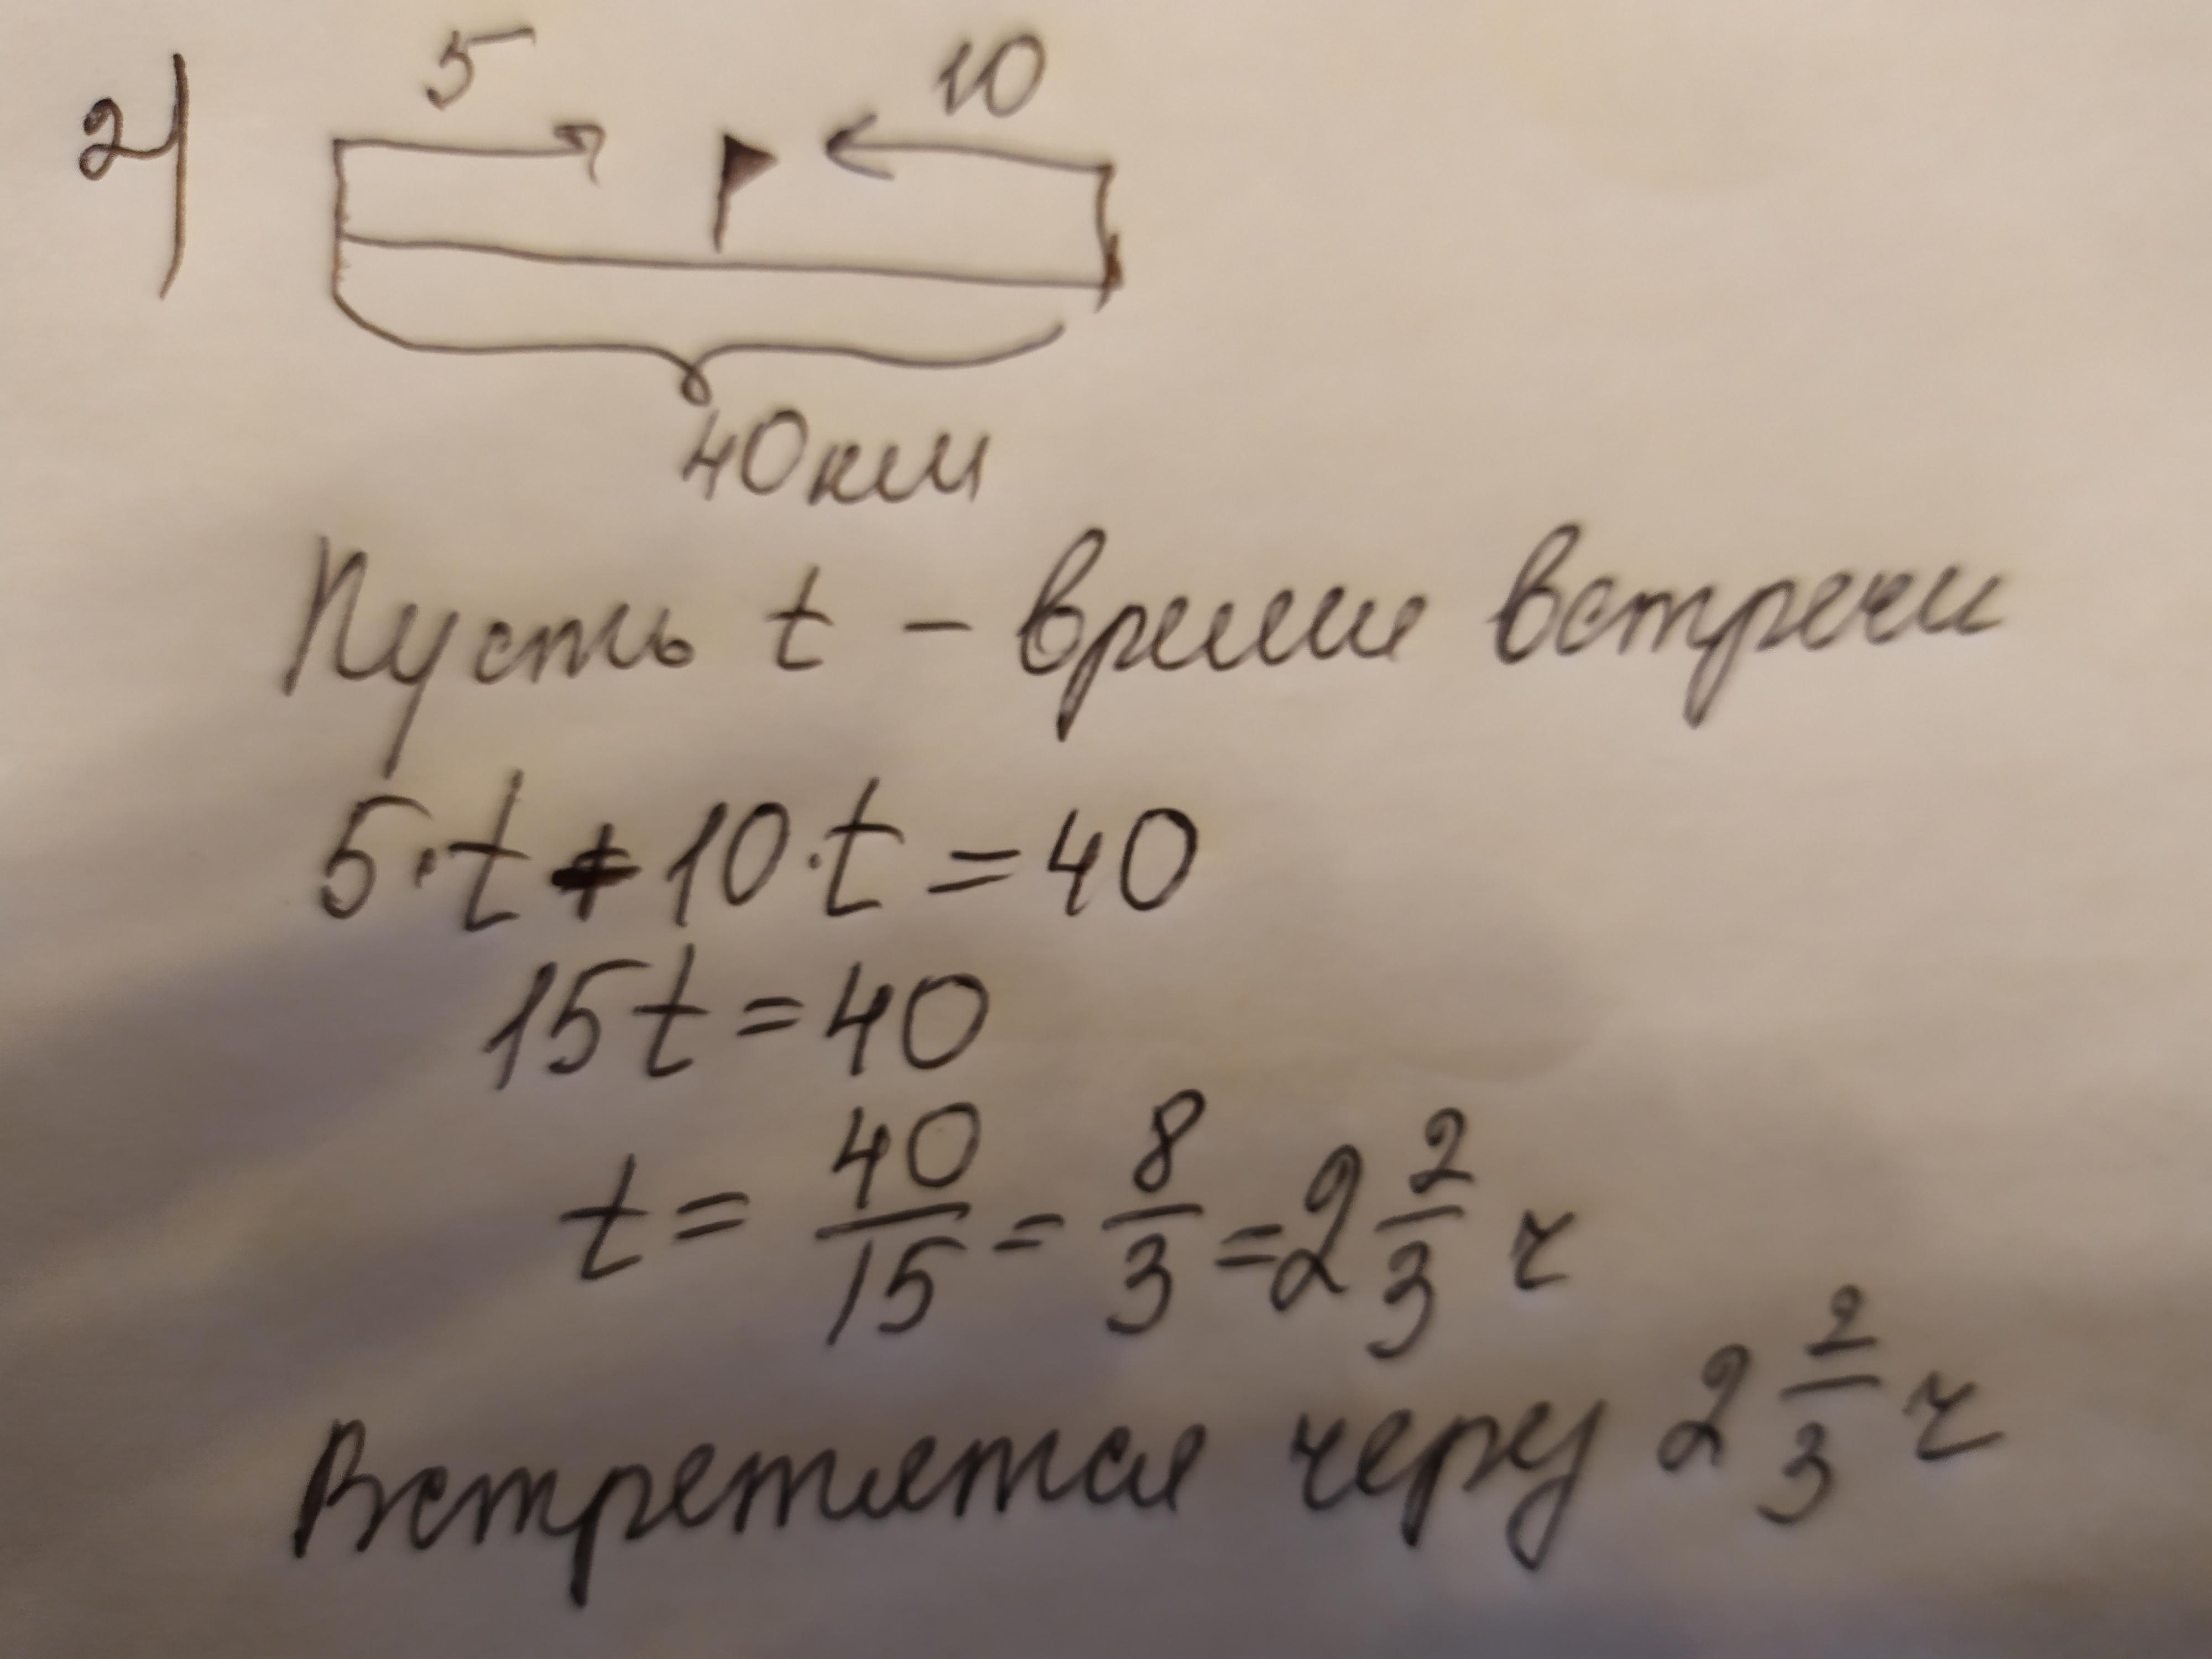 2)
5 10
40км
Пусть t - время встречи
5·t+10·t=40
15t=40
t= 40/15 = 8/3 =2 2/3 ч
Встретятся через 2 2/3 ч